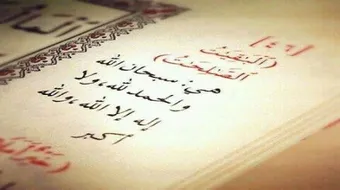 [٤٦]
(البَاقِيَاتُ
الصَّالِحَاتُ)
هي: سبحان الله
والحمد لله، ولا
إله إلا الله، والله
أكبر